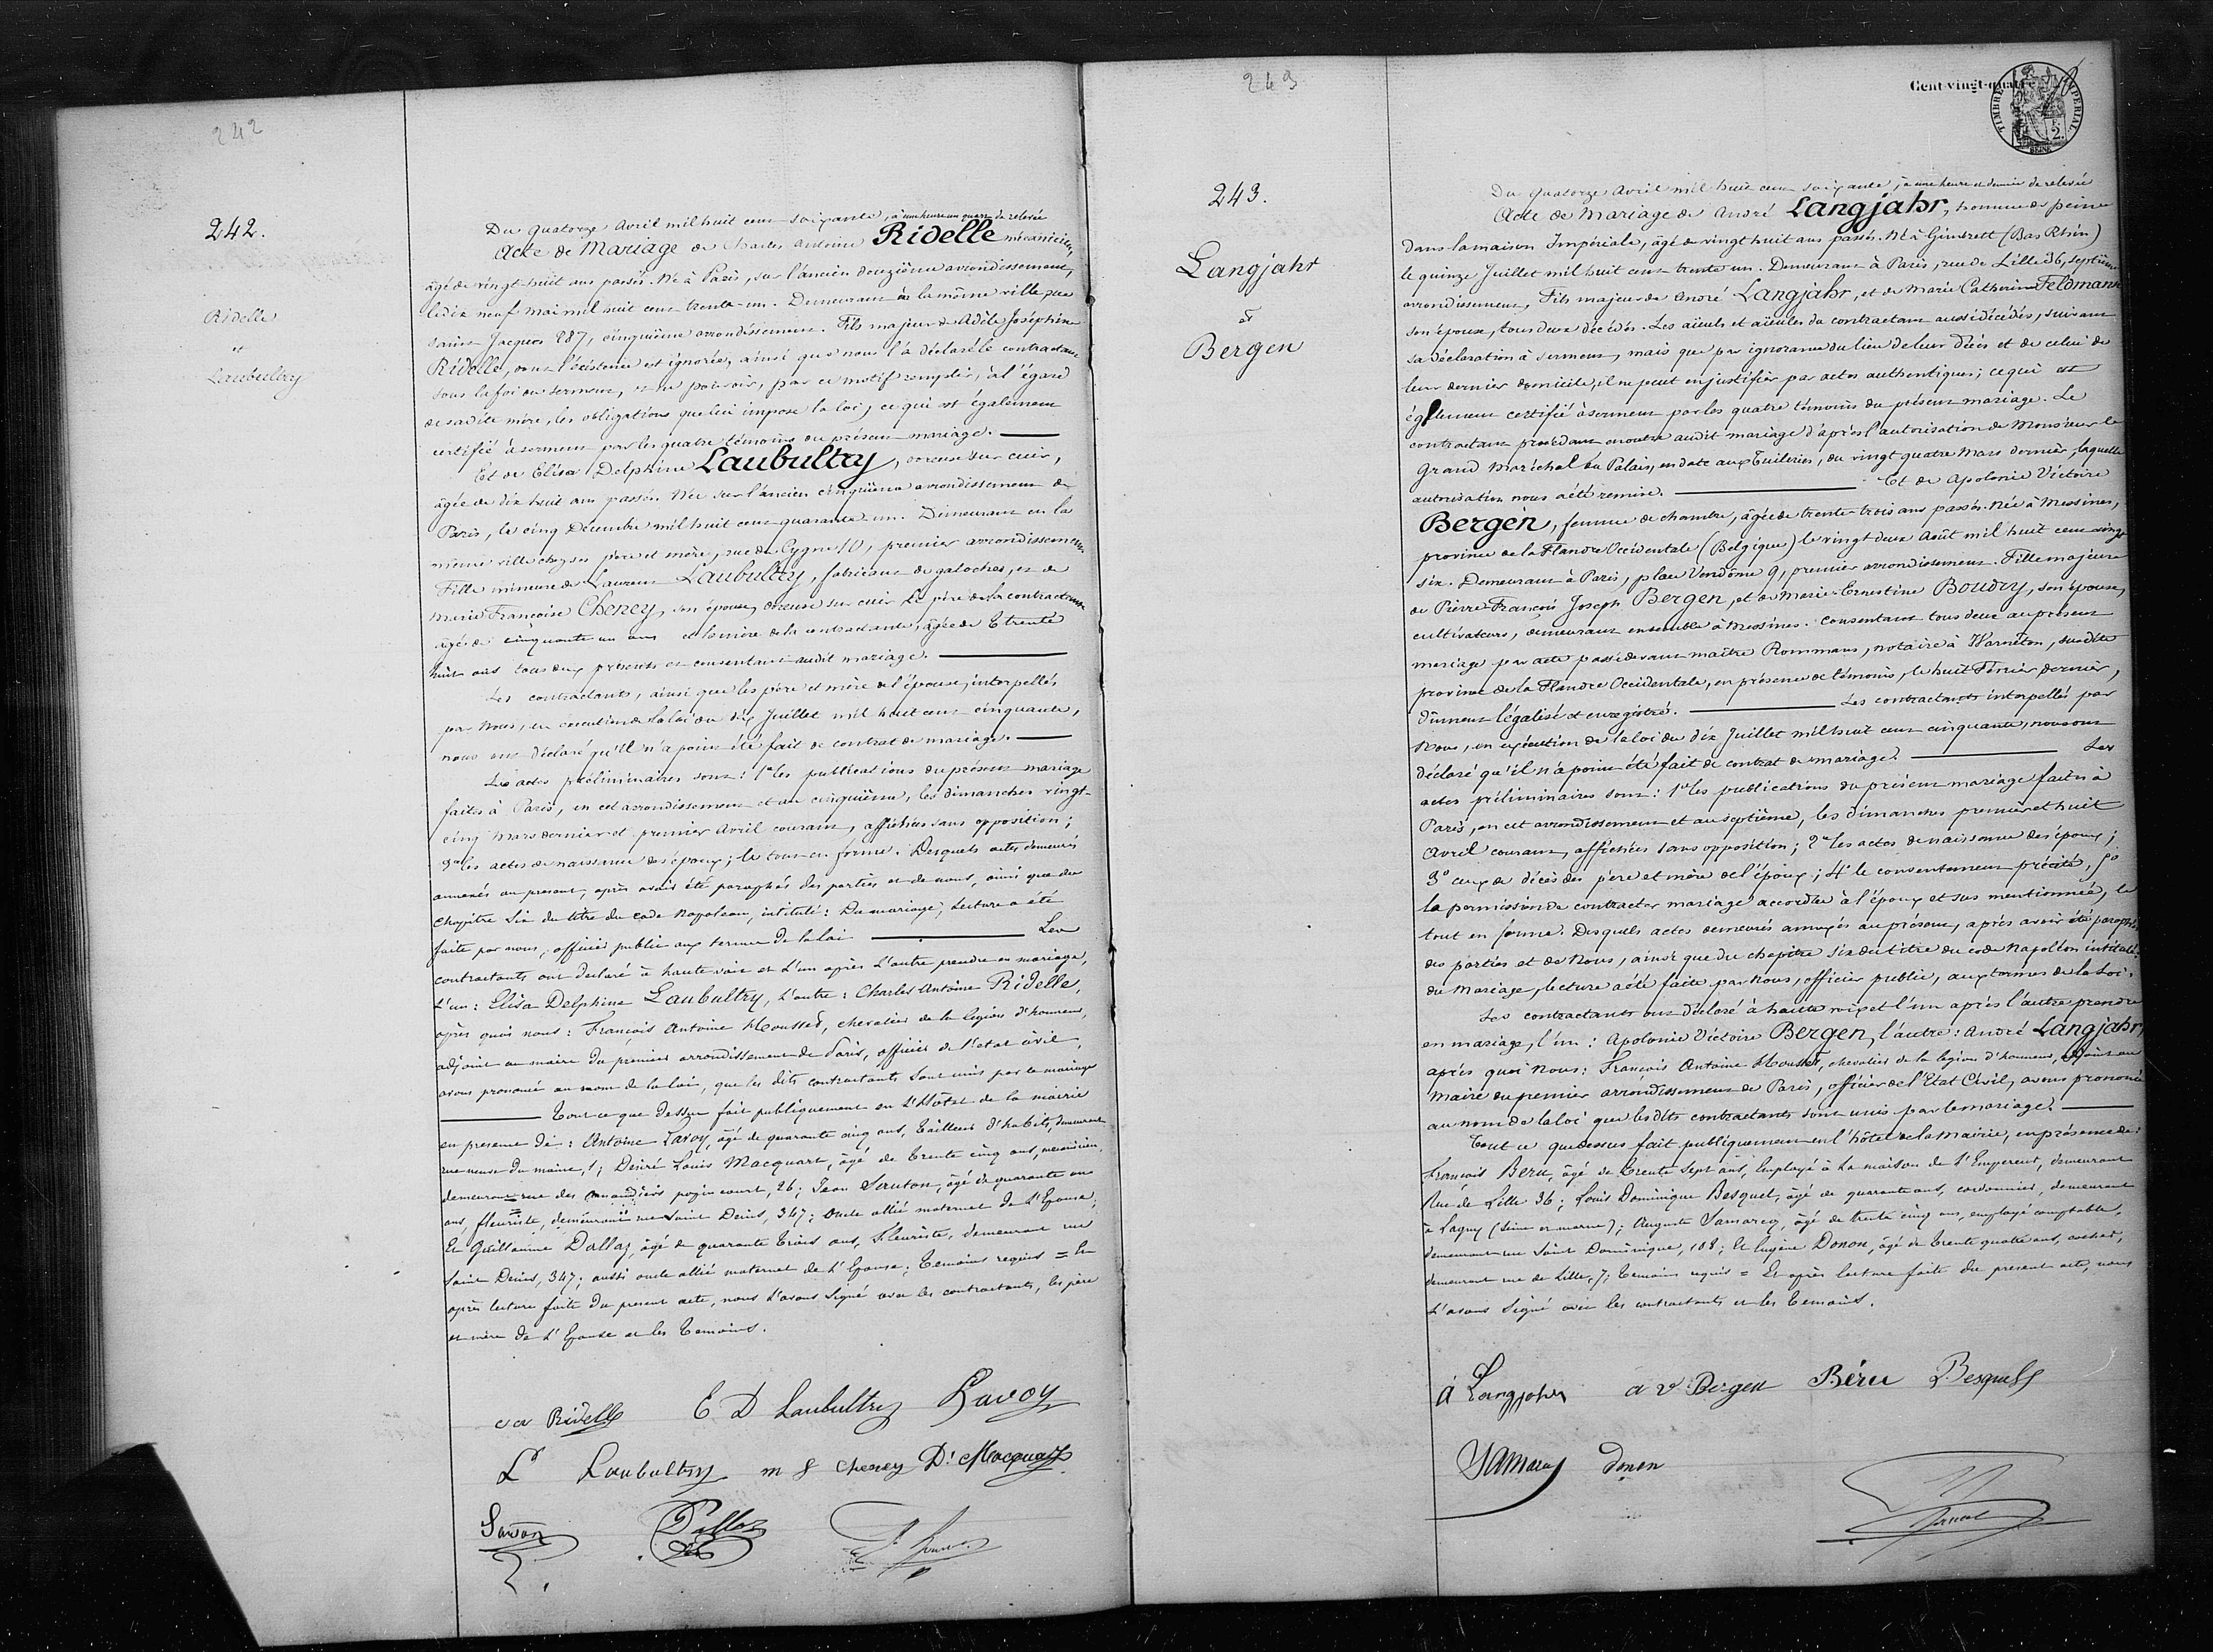 242
242.
Ridelle
et
Laubultry
Du quatorze Avril mil huit cent soixante, à une heure un quart de relevée
Acte de Mariage de Charles Antoine Ridelle mécanicien,
âgé de vingt-huit ans passés. Né à Paris, sur l'ancien douzième arrondissement,
le dix neuf mai mil huit cent trente-un. Demeurant en la même ville rue
saint Jacques 287, cinquième arrondissement. Fils majeur de Adèle Joséphine
Ridelle, dont l'existence est ignorée, ainsi que nous l'a déclaré le contractant
sous la foi du serment, et ne pouvoir, par ce motif remplir, à l'égard
de sadite mère, les obligations que lui impose la loi, ce qui est également
certifié à serment par les quatre témoins du présent mariage.
Et de Elisa Delphine Laubultry, oreuse sur cuir,
âgée de dix huit ans passés. Née sur l'ancien cinquième arrondissement de
Paris, le cinq Décembre mil huit cent quarante-un. Demeurant en la
même ville chez ses père et mère, rue du Cygne 10, premier arrondissement
Fille mineure de Laurent Laubultry, fabricant de galoches, et de
Marie Françoise Cheney, son épouse, oreuse sur cuir Le père de la contractante
âgé de cinquante un ans et la mère de la contractante, âgée de trente
huit ans tous deux présents et consentant audit mariage.
Les contractants, ainsi que les père et mère de l'épouse, interpellés
par Nous, en exécution de la loi du dix Juillet mil huit cent cinquante,
nous ont déclaré qu'il n'a point été fait de contrat de mariage.
Les actes préliminaires sont: 1° les publications du présent mariage
faites à Paris, en cet arrondissement et au cinquième, les dimanches vingt-
cinq Mars dernier et premier Avril courant, affichées sans opposition;
2° les actes de naissance des époux; le tout en forme. Desquels actes demeurés
annexés au present, après avoir été paraphés des parties et de nous, ainsi que du
chapitre six du titre du code Napoléon, intitulé: Du mariage, lecture a été
faite par nous, officier public aux termes de la loi Les
contractants ont declaré à haute voix et l'un après l'autre prendre en mariage,
L'un: Elisa Delphine Laubultry, L'autre: Charles Antoine Ridelle,
après quoi nous: François Antoine Housset, chevalier de la legion d'honneur,
adjoint au maire du premier arrondissement de Paris, officier de l'etat civil,
avons prononcé au nom de la loi, que les dits contractants sont unis par le mariage
Tout ce que dessus fait publiquement en L'Hôtel de la mairie
en presence de: Antoine Lavoy, âgé de quarante cinq ans, tailleur d'habits, demeurant
rue neuve du maine, 1; Désiré Louis Macquart, âgé de trente cinq ans, mecanicien,
demeurant rue des amandiers popincourt, 26; Jean Sauton, âgé de quarante
ans, fleuriste, demeurant rue Saint Denis, 347; oncle allié maternel de l'Epouse;
Et Guillaume Dallaz, âgé de quarante trois ans, fleuriste, demeurant rue
Saint Denis, 347; aussi oncle allié maternel de l'Epouse; temoins requis = Et
après lecture faite du present acte, nous l'avons signé avec les contractants, les père
et mère de l'Epouse et les temoins.
c a Ridelle E D Laubultry Lavoy
Lt Laubultry m f cheney Dé Macquart
Sauton Dallaz
243
243.
Langjahr
et
Bergen
Cent-vingt-quatre
TIMBRE IMPERIAL
2
SEINE
Du quatorze Avril mil huit cent soixante, à une heure et demie de relevée
Acte de Mariage de André Langjahr, homme de peine
dans la maison Impériale, âgé de vingt huit ans passés. Né à Gimbrett (Bas Rhin)
le quinze Juillet mil huit cent trente un. Demeurant à Paris, rue de Lille 36, septième
arrondissement, Fils majeur de André Langjahr, et de Marie Catherine Feldmann
son épouse, tous deux décédés. Les aïeuls et aïeules du contractant aussi décédés, suivant
sa déclaration à serment, mais que par ignorance du lieu de leur décès et de celui de
leur dernier domicile, il ne peut en justifier par actes authentiques; ce qui est
également certifié à serment par les quatre témoins du présent mariage. Le
contractant procédant en outre audit mariage d'après l'autorisation de Monsieur le
Grand Maréchal du Palais, en date aux Tuileries, du vingt quatre Mars dernier, laquelle
autorisation nous a été remise. Et de Apolonie Victoire
Bergen, femme de chambre, âgée de trente-trois ans passés. Née à Messines,
province de la Flandre Occidentale (Belgique) le vingt deux Août mil huit cent vingt
six. Demeurant à Paris, place Vendôme 9, premier arrondissement. Fille majeure
de Pierre François Joseph Bergen, et de Marie Ernestine Boudry, son épouse,
cultivateurs, demeurant ensemble à Messines. Consentant tous deux au présent
mariage par acte passé devant maître Rommans, notaire à Warneton, susdite
province de la Flandre Occidentale, en présence de témoins, le huit Février dernier,
dûment légalisé et enregistré. Les contractants interpellés par
Nous, en exécution de la loi du dix Juillet mil huit cent cinquante, nous ont
déclaré qu'il n'a point été fait de contrat de mariage. Les
actes préliminaires sont: 1° les publications du présent mariage faites à
Paris, en cet arrondissement et au septième, les dimanches premier et huit
Avril courant, affichées sans opposition; 2° les actes de naissance des époux;
3° ceux de décès des père et mère de l'époux; 4° le consentement précité, 5°
la permission de contracter mariage accordée à l'époux et sus mentionnée, le
tout en forme. Desquels actes demeurés annexés au présent, après avoir été paraphés
des parties et de Nous, ainsi que du chapitre six du titre du code Napoléon intitulé:
du Mariage, lecture a été faite par Nous, officier public, aux termes de la Loi.
Les contractants ont déclaré à haute voix et l'un après l'autre prendre
en mariage, l'un: Apolonie Victoire Bergen, l'autre: André Langjahr,
après quoi Nous: François Antoine Housset, chevalier de la légion d'honneur, adjoint au
Maire du premier arrondissement de Paris, officier de l'Etat Civil, avons prononcé
au nom de la loi que lesdits contractants sont unis par le mariage.
Tout ce que dessus fait publiquement en l'hôtel de la Mairie, en présence de:
François Beru, âgé de trente sept ans, Employé à la maison de l'Empereur, demeurant
Rue de Lille 36; Louis Dominique Besquel, âgé de quarante ans, cordonnier, demeurant
à Lagny (Seine et marne); Auguste Samarcq, âgé de trente cinq ans, employé comptable,
demeurant rue Saint Dominique, 188; Et Eugène Donon, âgé de trente quatre ans, cocher,
demeurant rue de Lille, 7; temoins requis = Et après lecture faite du present acte, nous
l'avons signé avec les contractants et les temoins.
A Langjahr a v Bergen Béru Besquel
Samarcq donon